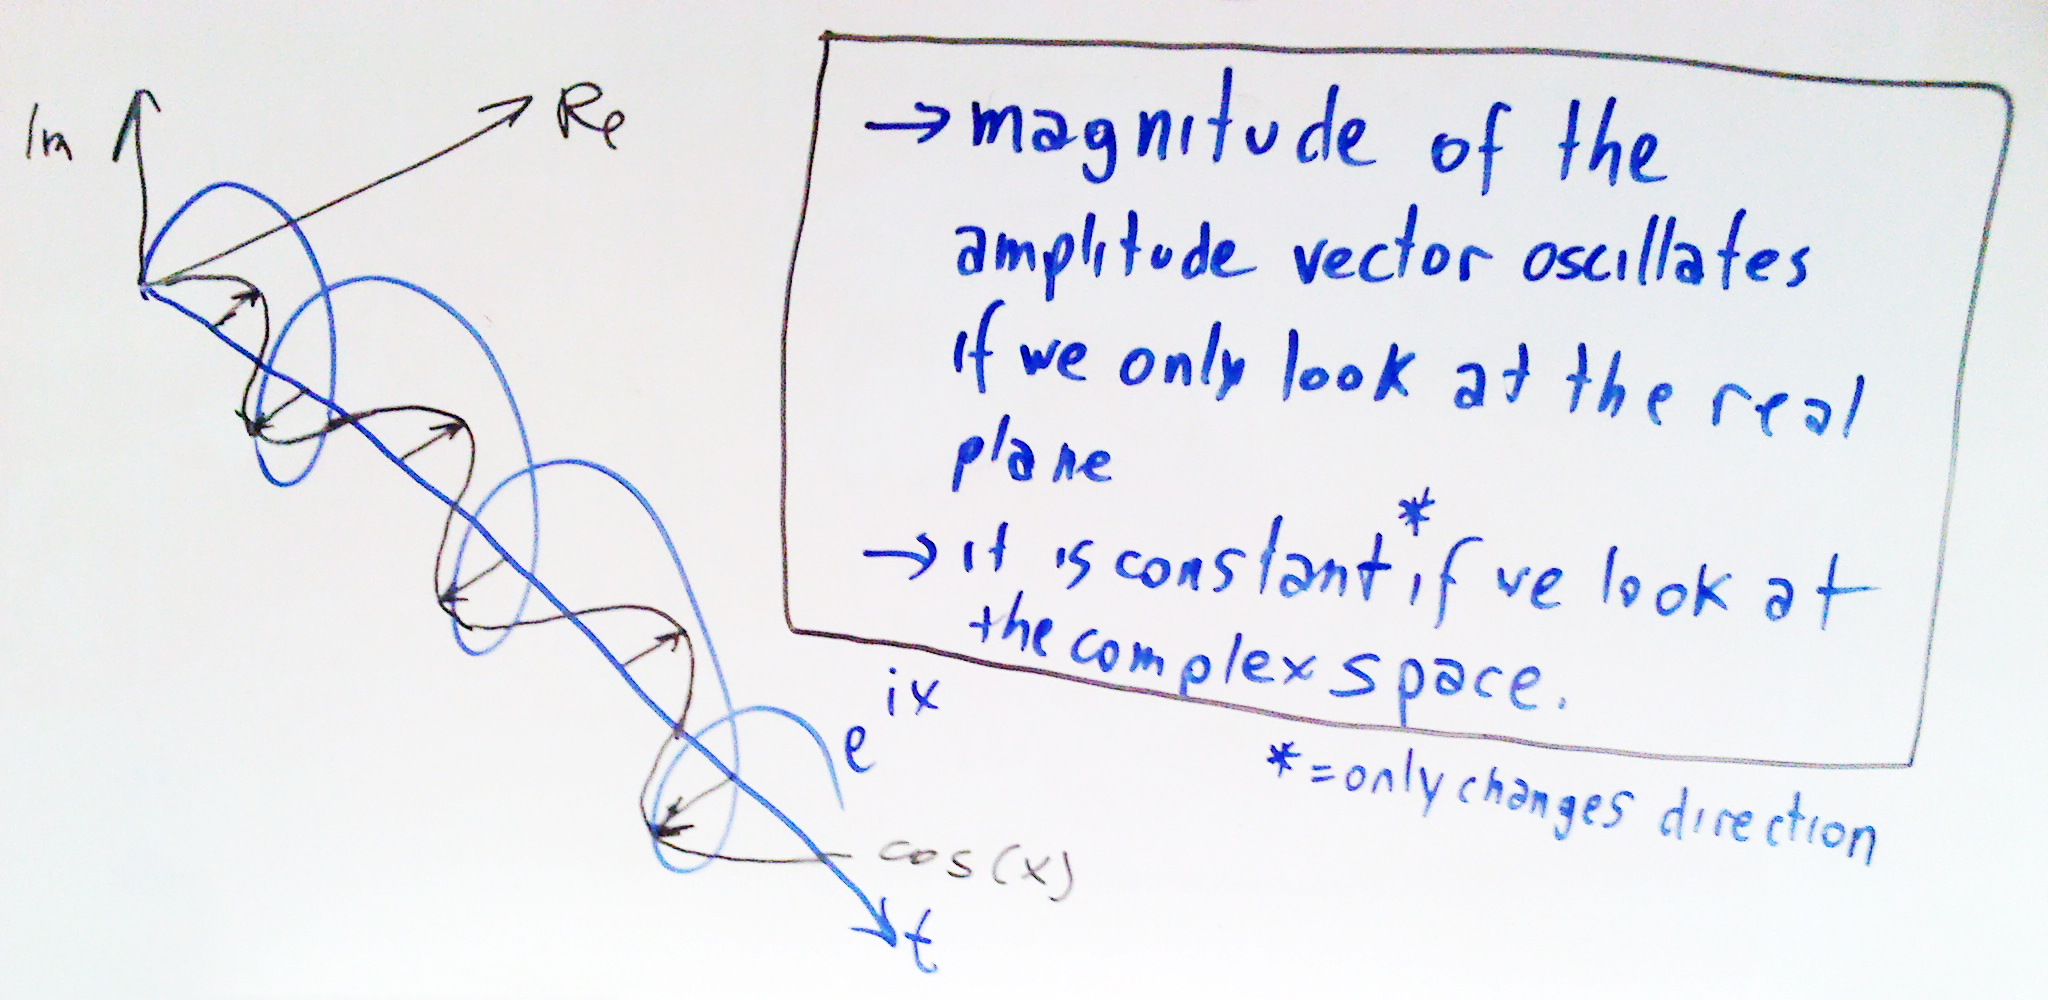 Im
Re
→ magnitude of the
amplitude vector oscillates
if we only look at the real
plane
→ it is constant* if we look at
the complex space.
* = only changes direction
e^ix
cos(x)
t